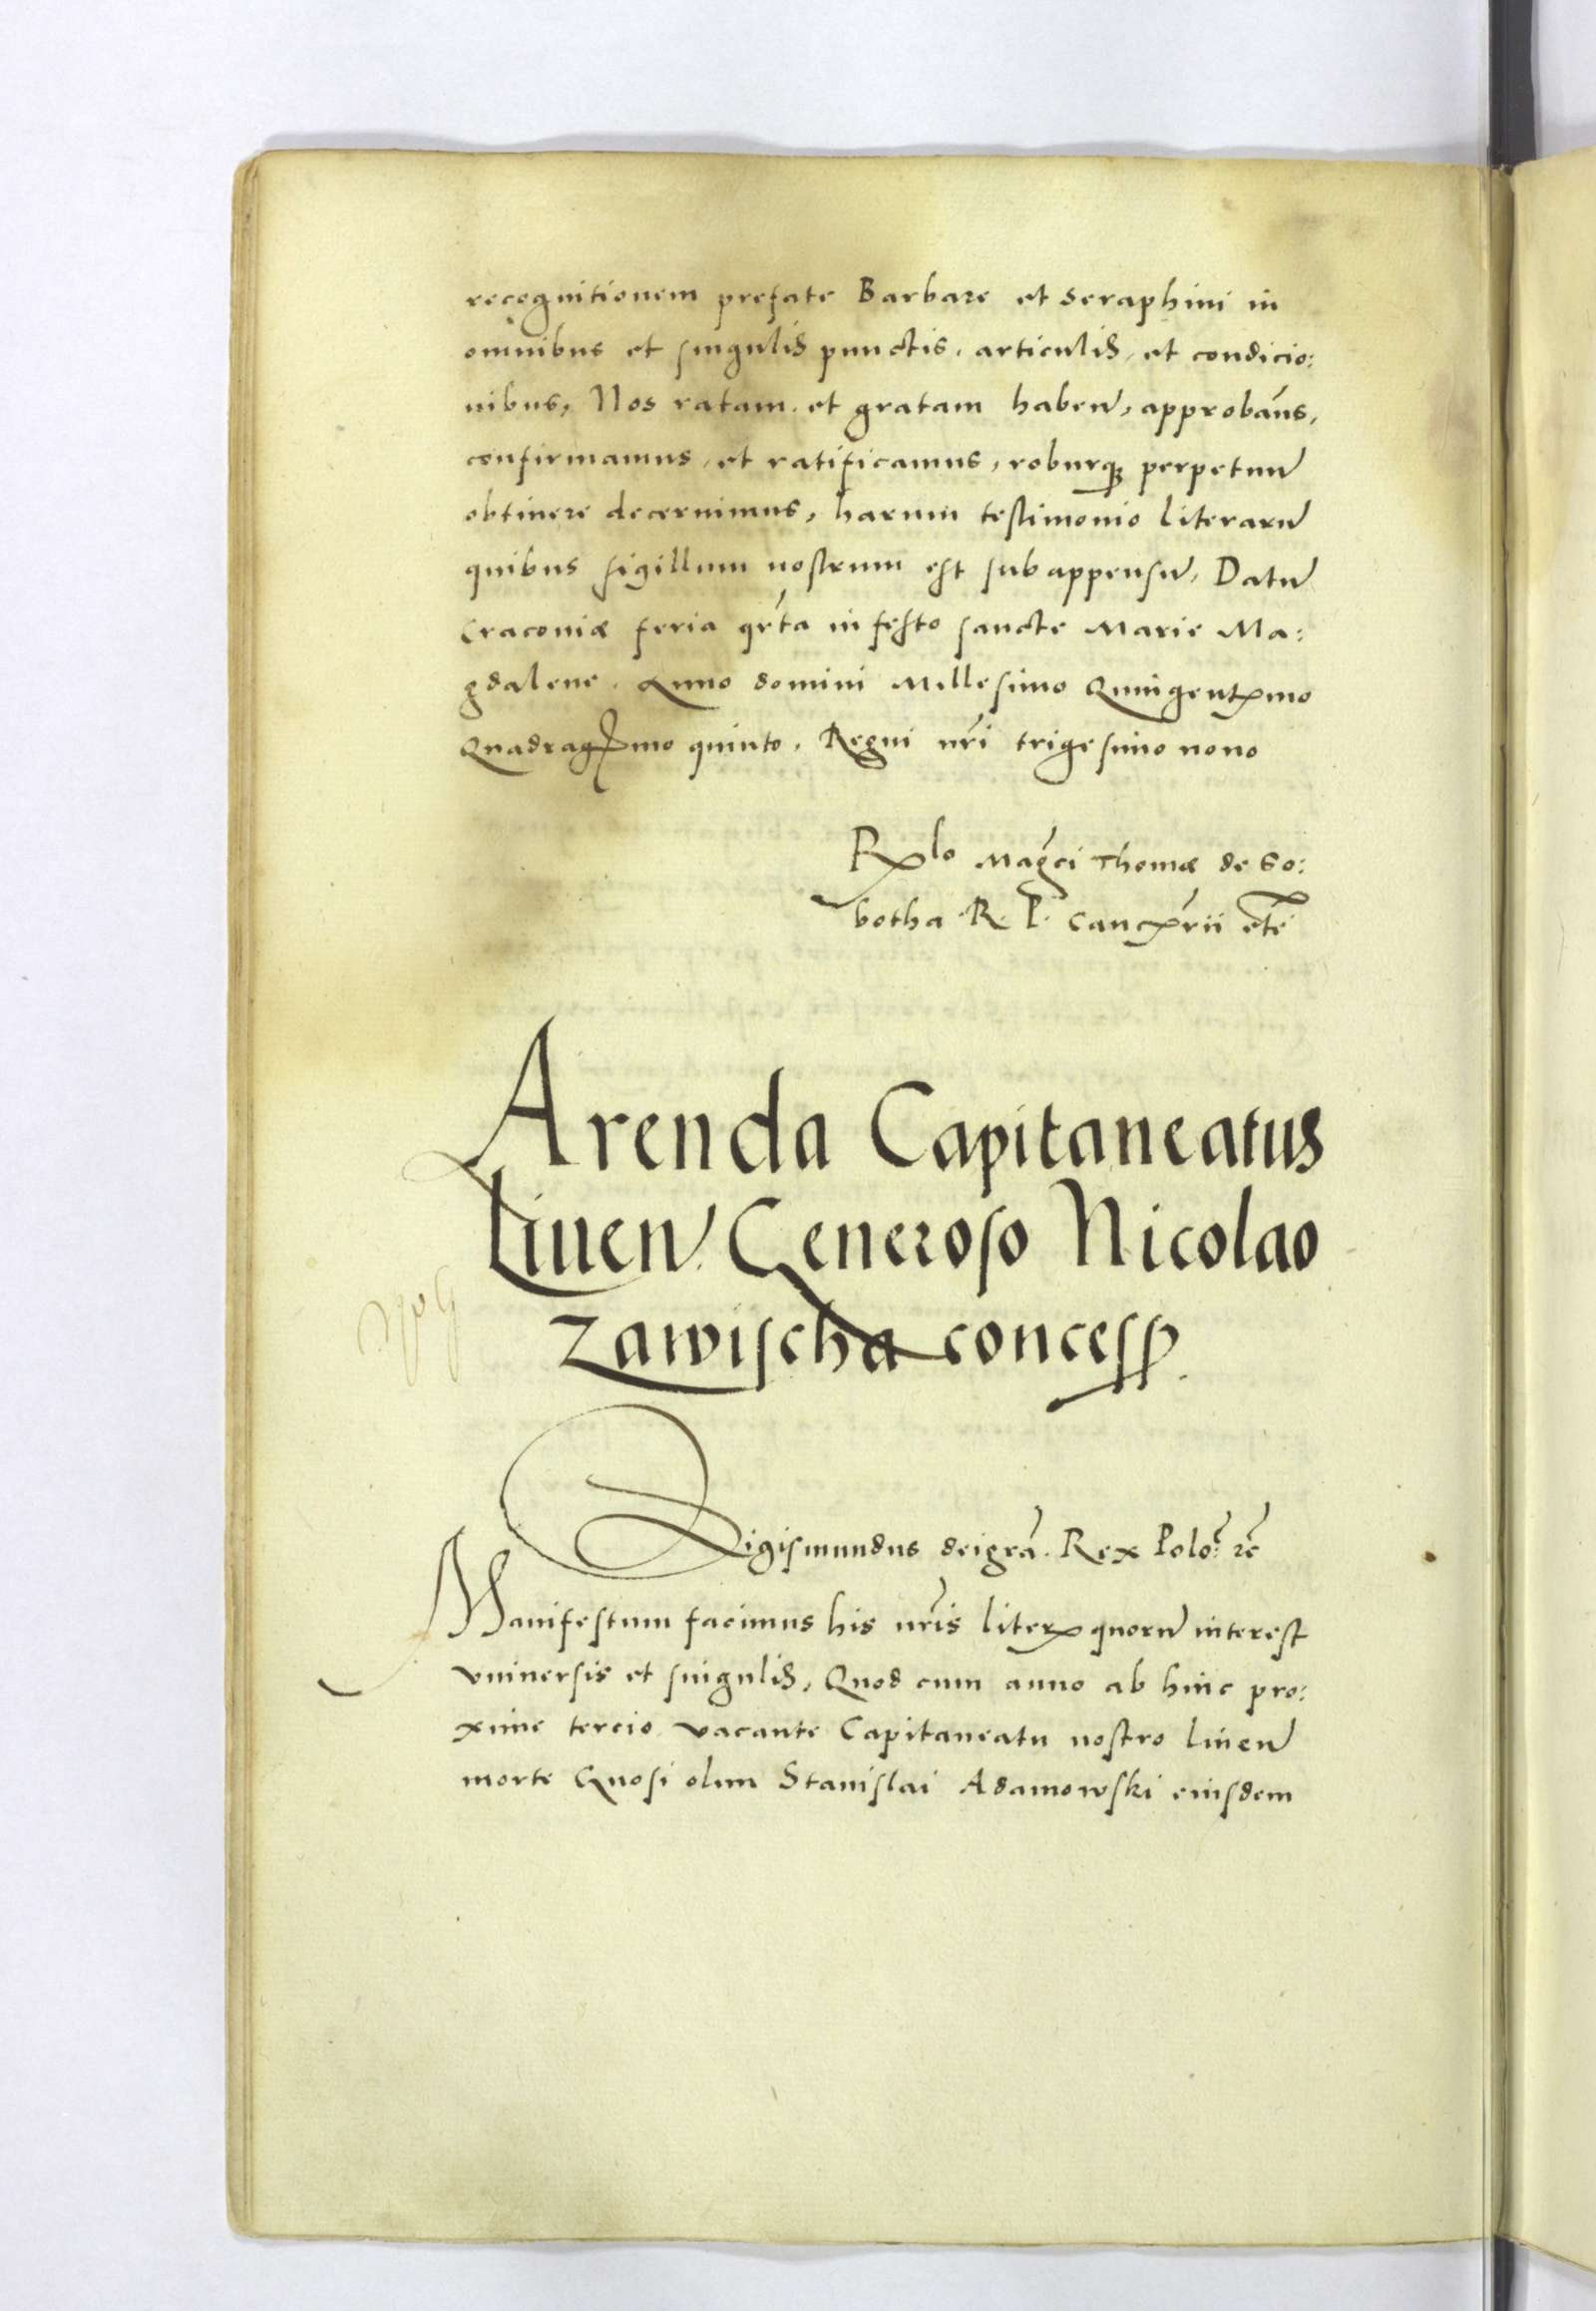 recognitionem prefate Barbare et Seraphini in
omnibus et singulis punctis, articulis, et condicio:
nibus, Nos ratam et gratam haben̄, approbaūs,
confirmamus, et ratificamus, roburq3 perpetuū
obtinere decernimus, harum testimonio literarū
quibus sigillum nostrum est subappensū, Datū
Cracoviæ feria qr̄ta in festo sancte Marie Ma:
gdalene. Anno domini Millesimo Quingentꝭmo
Quadragꝭmo quinto, Regni nr̄i trigesimo nono
Rꝭlo Magc̄i Thomæ de So:
botha R. P. Cancꝭrii etc̄
Arenda Capitaneatus
Liuen̄. Generoso Nicolao
Zawischa concess̄.
Sigismundus dei gr̄a. Rex Polo: zc̄
Manifestum facimus his nr̄is literꝭ quorū interest
vniuersis et singulis, Quod cum anno ab hinc pro:
xime tercio vacante Capitaneatu nostro liuen̄
morte Gnosi olim Stanislai Adamowski eiusdem